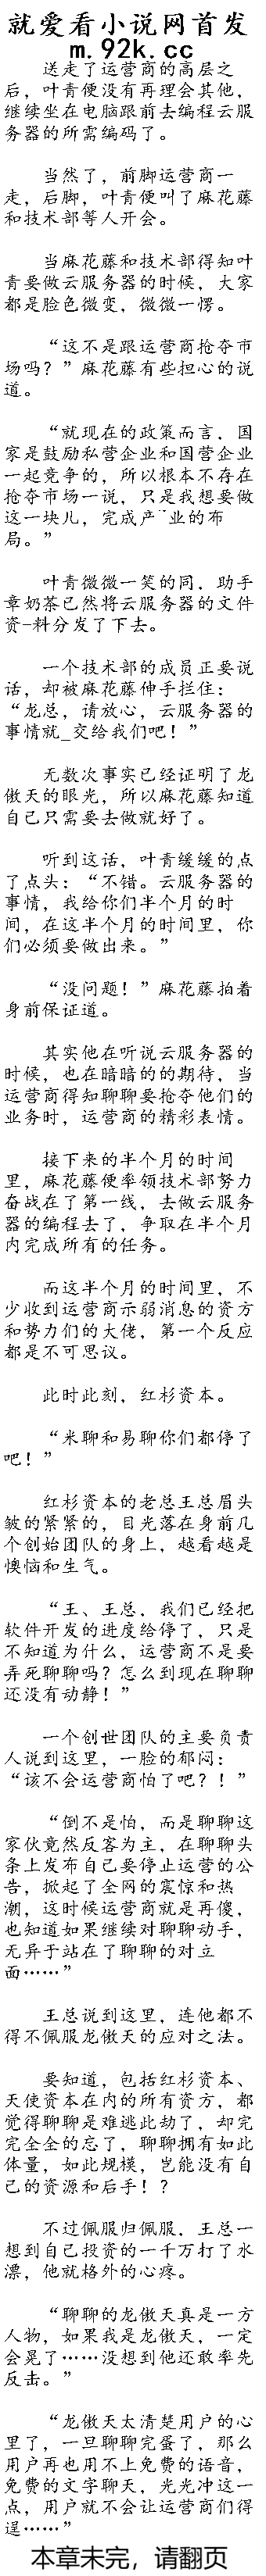 就爱看小说网首发
m.92k.cc
送走了运营商的高层之
后，叶青便没有再理会其他，
继续坐在电脑跟前去编程云服
务器的所需编码了。
当然了，前脚运营商一
走，后脚，叶青便叫了麻花藤
和技术部等人开会。
当麻花藤和技术部得知叶
青要做云服务器的时候，大家
都是脸色微变，微微一愣。
“这不是跟运营商抢夺市
场吗？”麻花藤有些担心的说
道。
“就现在的政策而言，国
家是鼓励私营企业和国营企业
一起竞争的，所以根本不存在
抢夺市场一说，只是我想要做
这一块儿，完成产ˉ业的布
局。”
叶青微微一笑的同，助手
章奶茶已然将云服务器的文件
资-料分发了下去。
一个技术部的成员正要说
话，却被麻花藤伸手拦住：
“龙总，请放心，云服务器的
事情就_交给我们吧！”
无数次事实已经证明了龙
傲天的眼光，所以麻花藤知道
自己只需要去做就好了。
听到这话，叶青缓缓的点
了点头：“不错。云服务器的
事情，我给你们半个月的时
间，在这半个月的时间里，你
们必须要做出来。”
“没问题！”麻花藤拍着
身前保证道。
其实他在听说云服务器的
时候，也在暗暗的的期待，当
运营商得知聊聊要抢夺他们的
业务时，运营商的精彩表情。
接下来的半个月的时间
里，麻花藤便率领技术部努力
奋战在了第一线，去做云服务
器的编程去了，争取在半个月
内完成所有的任务。
而这半个月的时间里，不
少收到运营商示弱消息的资方
和势力们的大佬，第一个反应
都是不可思议。
此时此刻，红杉资本。
“米聊和易聊你们都停了
吧！”
红杉资本的老总王总眉头
皱的紧紧的，目光落在身前几
个创始团队的身上，越看越是
懊恼和生气。
“王、王总，我们已经把
软件开发的进度给停了，只是
不知道为什么，运营商不是要
弄死聊聊吗？怎么到现在聊聊
还没有动静！”
一个创世团队的主要负责
人说到这里，一脸的郁闷：
“该不会运营商怕了吧？！”
“倒不是怕，而是聊聊这
家伙竟然反客为主，在聊聊头
条上发布自己要停止运营的公
告，掀起了全网的震惊和热
潮，这时候运营商就是再傻，
也知道如果继续对聊聊动手，
无异于站在了聊聊的对立
面……”
王总说到这里，连他都不
得不佩服龙傲天的应对之法。
要知道，包括红杉资本、
天使资本在内的所有资方，都
觉得聊聊是难逃此劫了，却完
完全全的忘了，聊聊拥有如此
体量，如此规模，岂能没有自
己的资源和后手！？
不过佩服归佩服，王总一
想到自己投资的一千万打了水
漂，他就格外的心疼。
“聊聊的龙傲天真是一方
人物，如果我是龙傲天，一定
会晃了……没想到他还敢率先
反击。”
“龙傲天太清楚用户的心
里了，一旦聊聊完蛋了，那么
用户再也用不上免费的语音，
免费的文字聊天，光光冲这一
点，用户就不会让运营商们得
逞……”
本章未完，请翻页